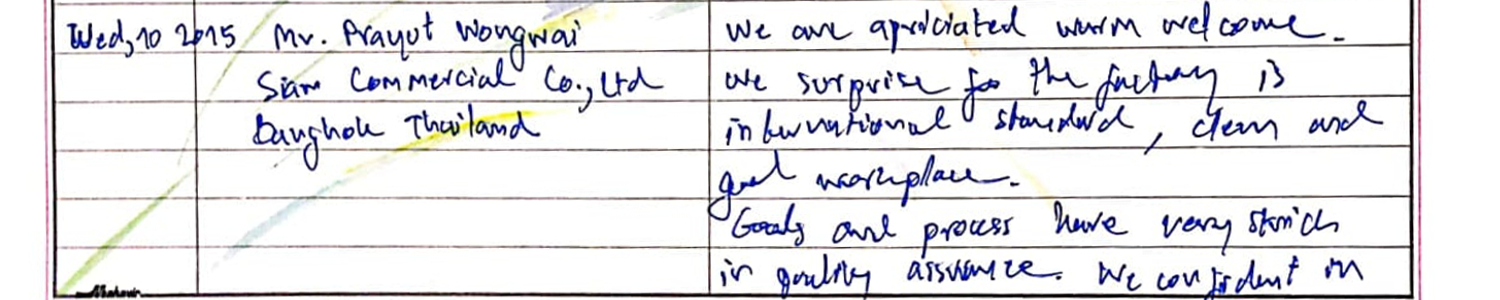 Wed, 10 2015
Mr. Prayut Wongwai
Siam Commercial Co., Ltd
Bangkok Thailand
We are apriciated warm welcome.
We surprise for the factory is
international standard, clean and
good workplace.
Goods and process have very strich
in quality assurance. We confident in